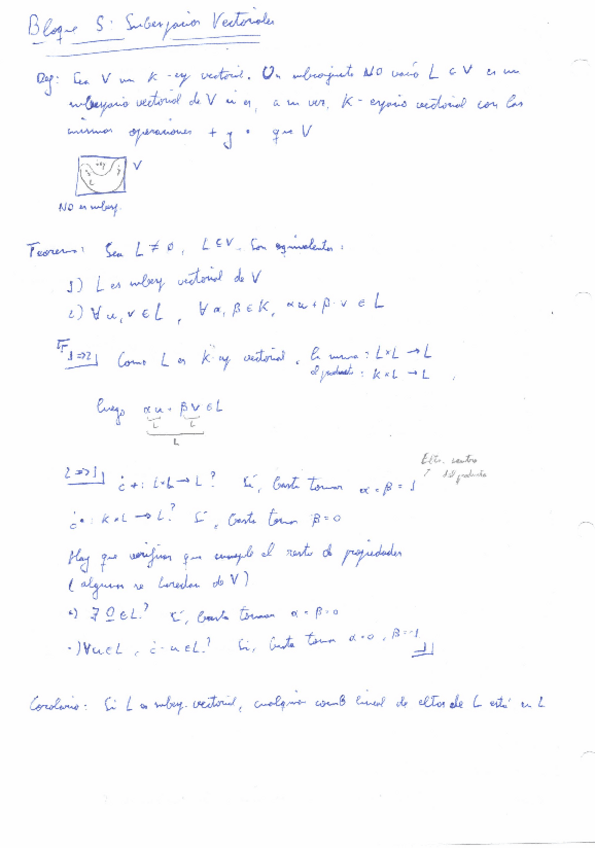 Bloque 5: Subespacios Vectoriales
Def: Sea V un K-esp vectorial. Un subconjunto NO vacío L ⊂ V es un
subespacio vectorial de V si es, a su vez, K-espacio vectorial con las
mismas operaciones + y · que V
V
L
NO es subesp.
Teorema: Sea L ≠ ∅, L ⊂ V. Son equivalentes:
1) L es subesp vectorial de V
2) ∀u,v ∈ L, ∀α, β ∈ K, αu + β·v ∈ L
1⇒2 Como L es K-esp vectorial, la suma: L×L → L
el producto: K×L → L
luego αu + βv ∈ L
L L
L
2⇒1 ¿+: L×L → L? Sí, basta tomar α = β = 1
Elto. neutro
del producto
¿•: K×L → L? Sí, basta tomar β = 0
Hay que verificar que cumple el resto de propiedades
(algunas se heredan de V)
•) ∃ 0 ∈ L? Sí, basta tomar α = β = 0
•) ∀u ∈ L, ¿-u ∈ L? Sí, basta tomar α = 0, β = -1
Corolario: Si L es subesp. vectorial, cualquier comb lineal de eltos de L está en L